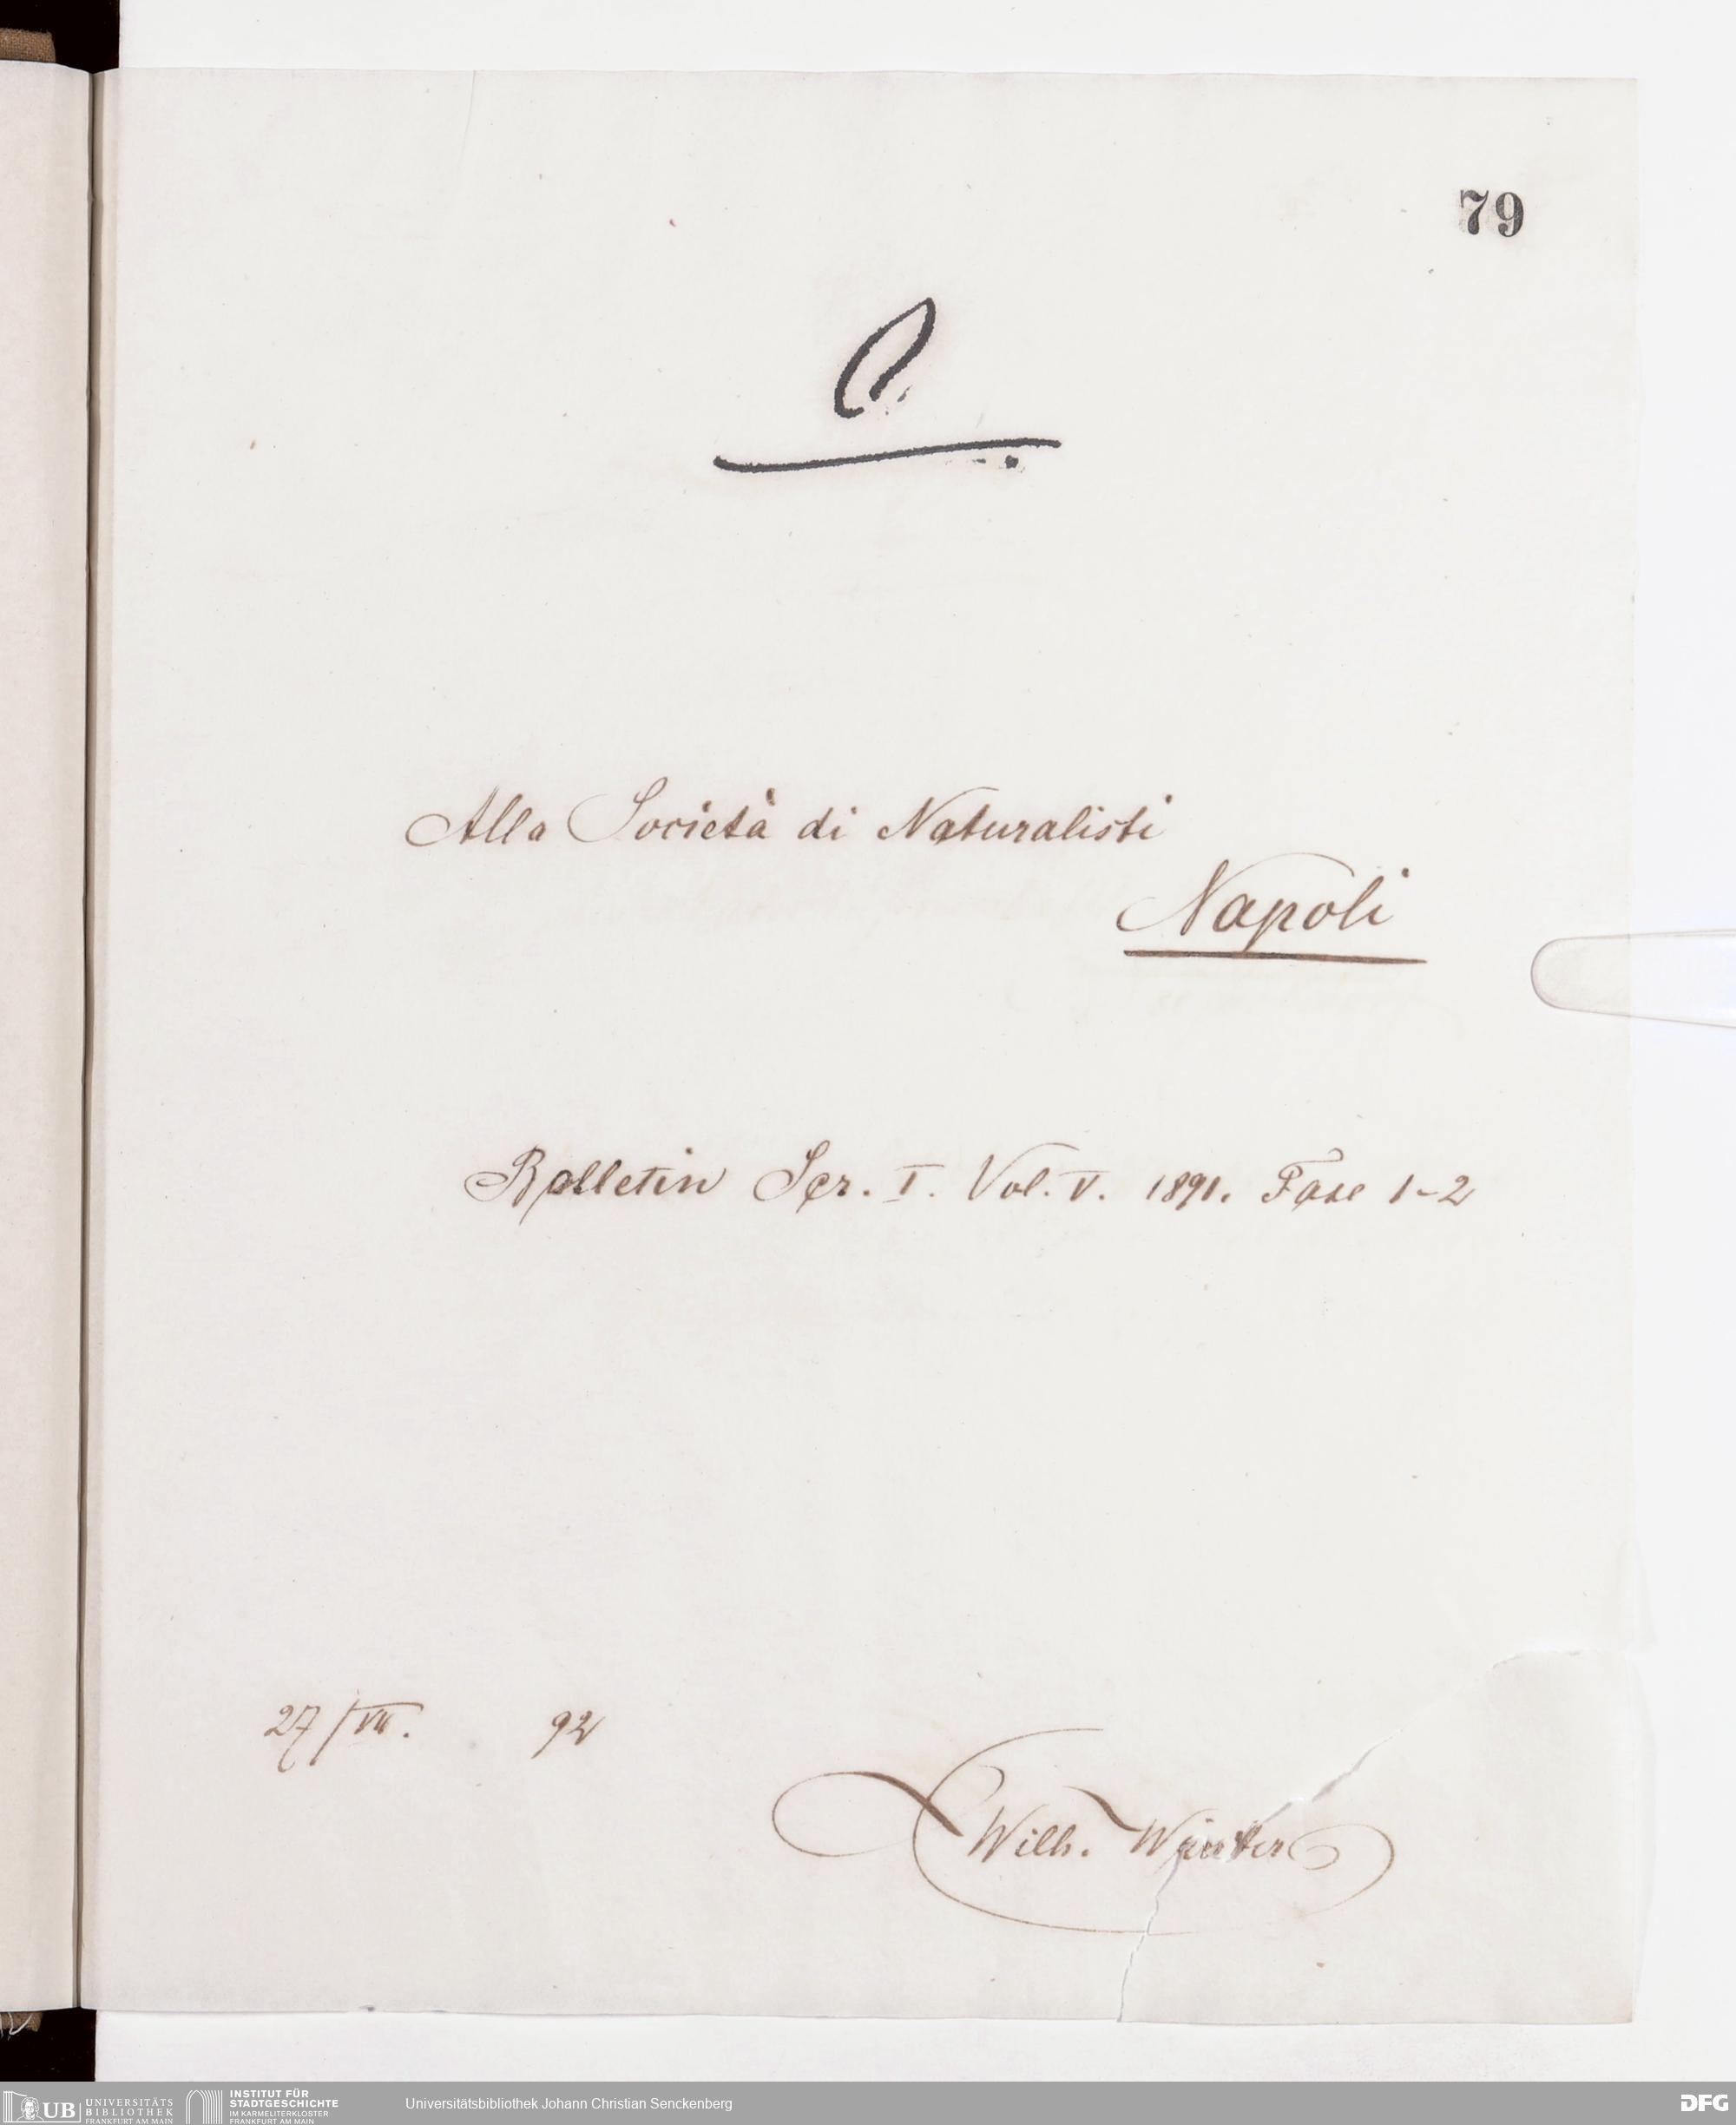 79
C.
Alla Società di Naturalisti
Napoli
Bolletin Ser. I. Vol. V. 1891. Fasc 1-2
27/VII. 92
Wilh. Winter
UB UNIVERSITÄTS
BIBLIOTHEK
FRANKFURT AM MAIN
INSTITUT FÜR
STADTGESCHICHTE
IM KARMELITERKLOSTER
FRANKFURT AM MAIN
Universitätsbibliothek Johann Christian Senckenberg
DFG